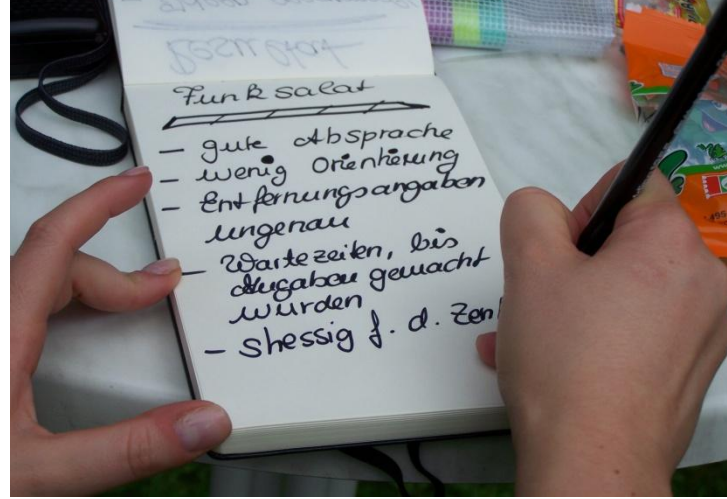 Funksalat
- gute Absprache
- wenig Orientierung
- Entfernungsangaben
ungenau
- Wartezeiten, bis
Angaben gemacht
wurden
- stressig f. d.